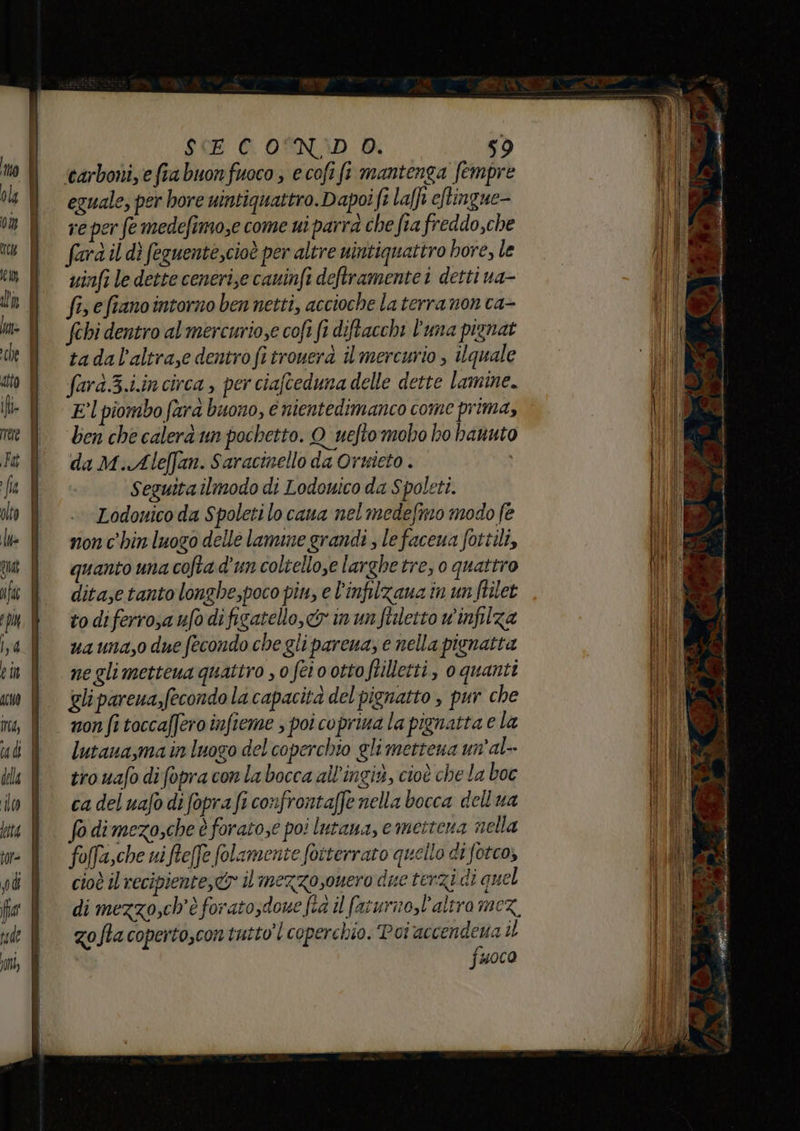 SECONDO. 59
carboni, e ſia buon fuoco, e coſi ſi mantenga ſempre
eguale, per hore uintiquattro. Dapoi ſi laſſi eſtingue-
re per ſe medeſimo, e come ui parrà che ſia freddo, che
ſarà il dì ſeguente, cioè per altre uintiquattro hore, le
uinſi le dette ceneri, e cauinſi deſtramente i detti ua-
ſi, e ſiano intorno ben netti, accioche la terra non ca-
ſchi dentro al mercurio, e coſi ſi diſtacchi l'una pignat
ta da l'altra, e dentro ſi trouerà il mercurio, ilquale
ſarà.3.i.in circa, per ciaſceduna delle dette lamine.
E'l piombo ſarà buono, e nientedimanco come prima,
ben che calerà un pochetto. Queſto mobo ho hauuto
da M. Aleſſan. Saracinello da Oruieto.
Seguita ilmodo di Lodouico da Spoleti.
Lodouico da Spoleti lo caua nel medeſimo modo ſe
non c'hin luogo delle lamine grandi, le faceua ſottili,
quanto una coſta d'un coltello, e larghe tre, o quattro
dita, e tanto longhe, poco piu, e l'infilzaua in un ſtilet
to di ferro, a uſo di figatello, & in un ſtiletto u'infilza
ua una, o due ſecondo che gli pareua, e nella pignatta
ne gli metteua quattro, o ſei o otto ſtilletti, o quanti
gli pareua, ſecondo la capacità del pignatto, pur che
non ſi toccaſſero inſieme, poi copriua la pignatta e la
lutaua, ma in luogo del coperchio gli metteua un'al-
tro uaſo di ſopra con la bocca all'ingiù, cioè che la boc
ca del uaſo di ſopra ſi confrontaſſe nella bocca dell ua
ſo di mezo, che è forato, e poi lutaua, e metteua nella
foſſa, che ui ſteſſe ſolamente ſotterrato quello di ſotto,
cioè il recipiente, & il mezzo, ouero due terzi di quel
di mezzo, ch'è forato, doue ſtà il ſaturno, l'altro mez
zo ſta coperto, con tutto'l coperchio. Poi accendeua il
fuoco